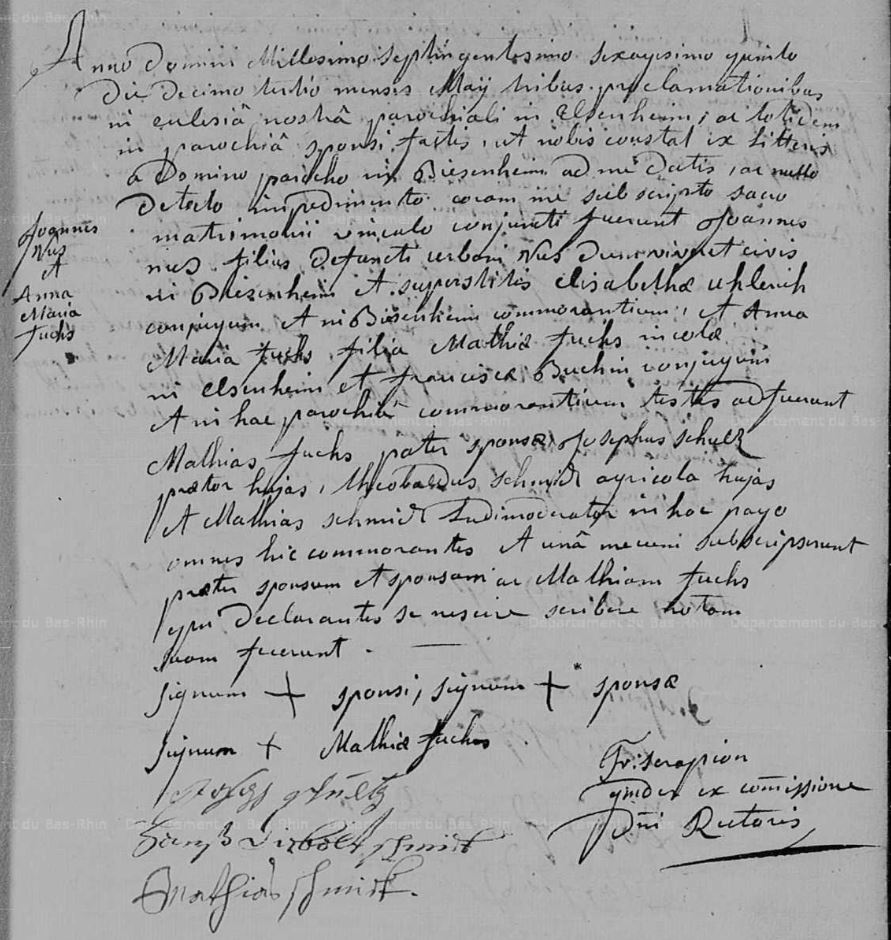 Anno Domini Millesimo septingentesimo sexagesimo quinto
die decimo tertio mensis Maÿ tribus proclamationibus
in eclesiâ nostrâ parochiali in Elsenheim, ac totidem
in parochiâ sponsi factis, ut nobis constat ex litteris
a Domino parocho in Biesenheim ad me datis, ac nullo
detecto impedimento coram me subscripto sacro
matrimonii vinculo conjuncti fuerunt Joannes
Nus filius defuncti urbani Nus dum viveret civis
in Biesenheim et superstitis Elisabethæ uhlerich
conjugum et in Biesenheim commorantium, et Anna
Maria fuchs filia Mathiæ fuchs incolæ
in Elsenheim et franciscæ Buchin conjugum
et in hac parochiâ commorantium testes adfuerunt
Mathias fuchs pater sponsæ, Josephus schultz
prætor hujas, theobaldus schmidt agricola hujas
et Mathias schmidt Ludimoderator in hoc pago
omnes hic commorantes et unâ mecum subscripserunt
præter sponsum et sponsam ac Mathiam fuchs
qui declarantes se nescire scribere notam
suam fecerunt. —
Joannes
Nus
et
Anna
Maria
fuchs
signum + sponsi, signum + sponsæ
signum + Mathiæ fuchs
Fr: serapion
ex comissione
Dni Rectoris
schmidt
Mathias schmidt.
Département du Bas-Rhin